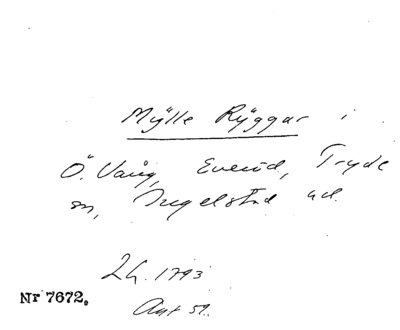 Mÿlle Rÿggar i
Ö. Vång, Everöd, Tryde
sn, Ingelstad hd.
Lh. 1793
Nr 7672.
Akt 59.